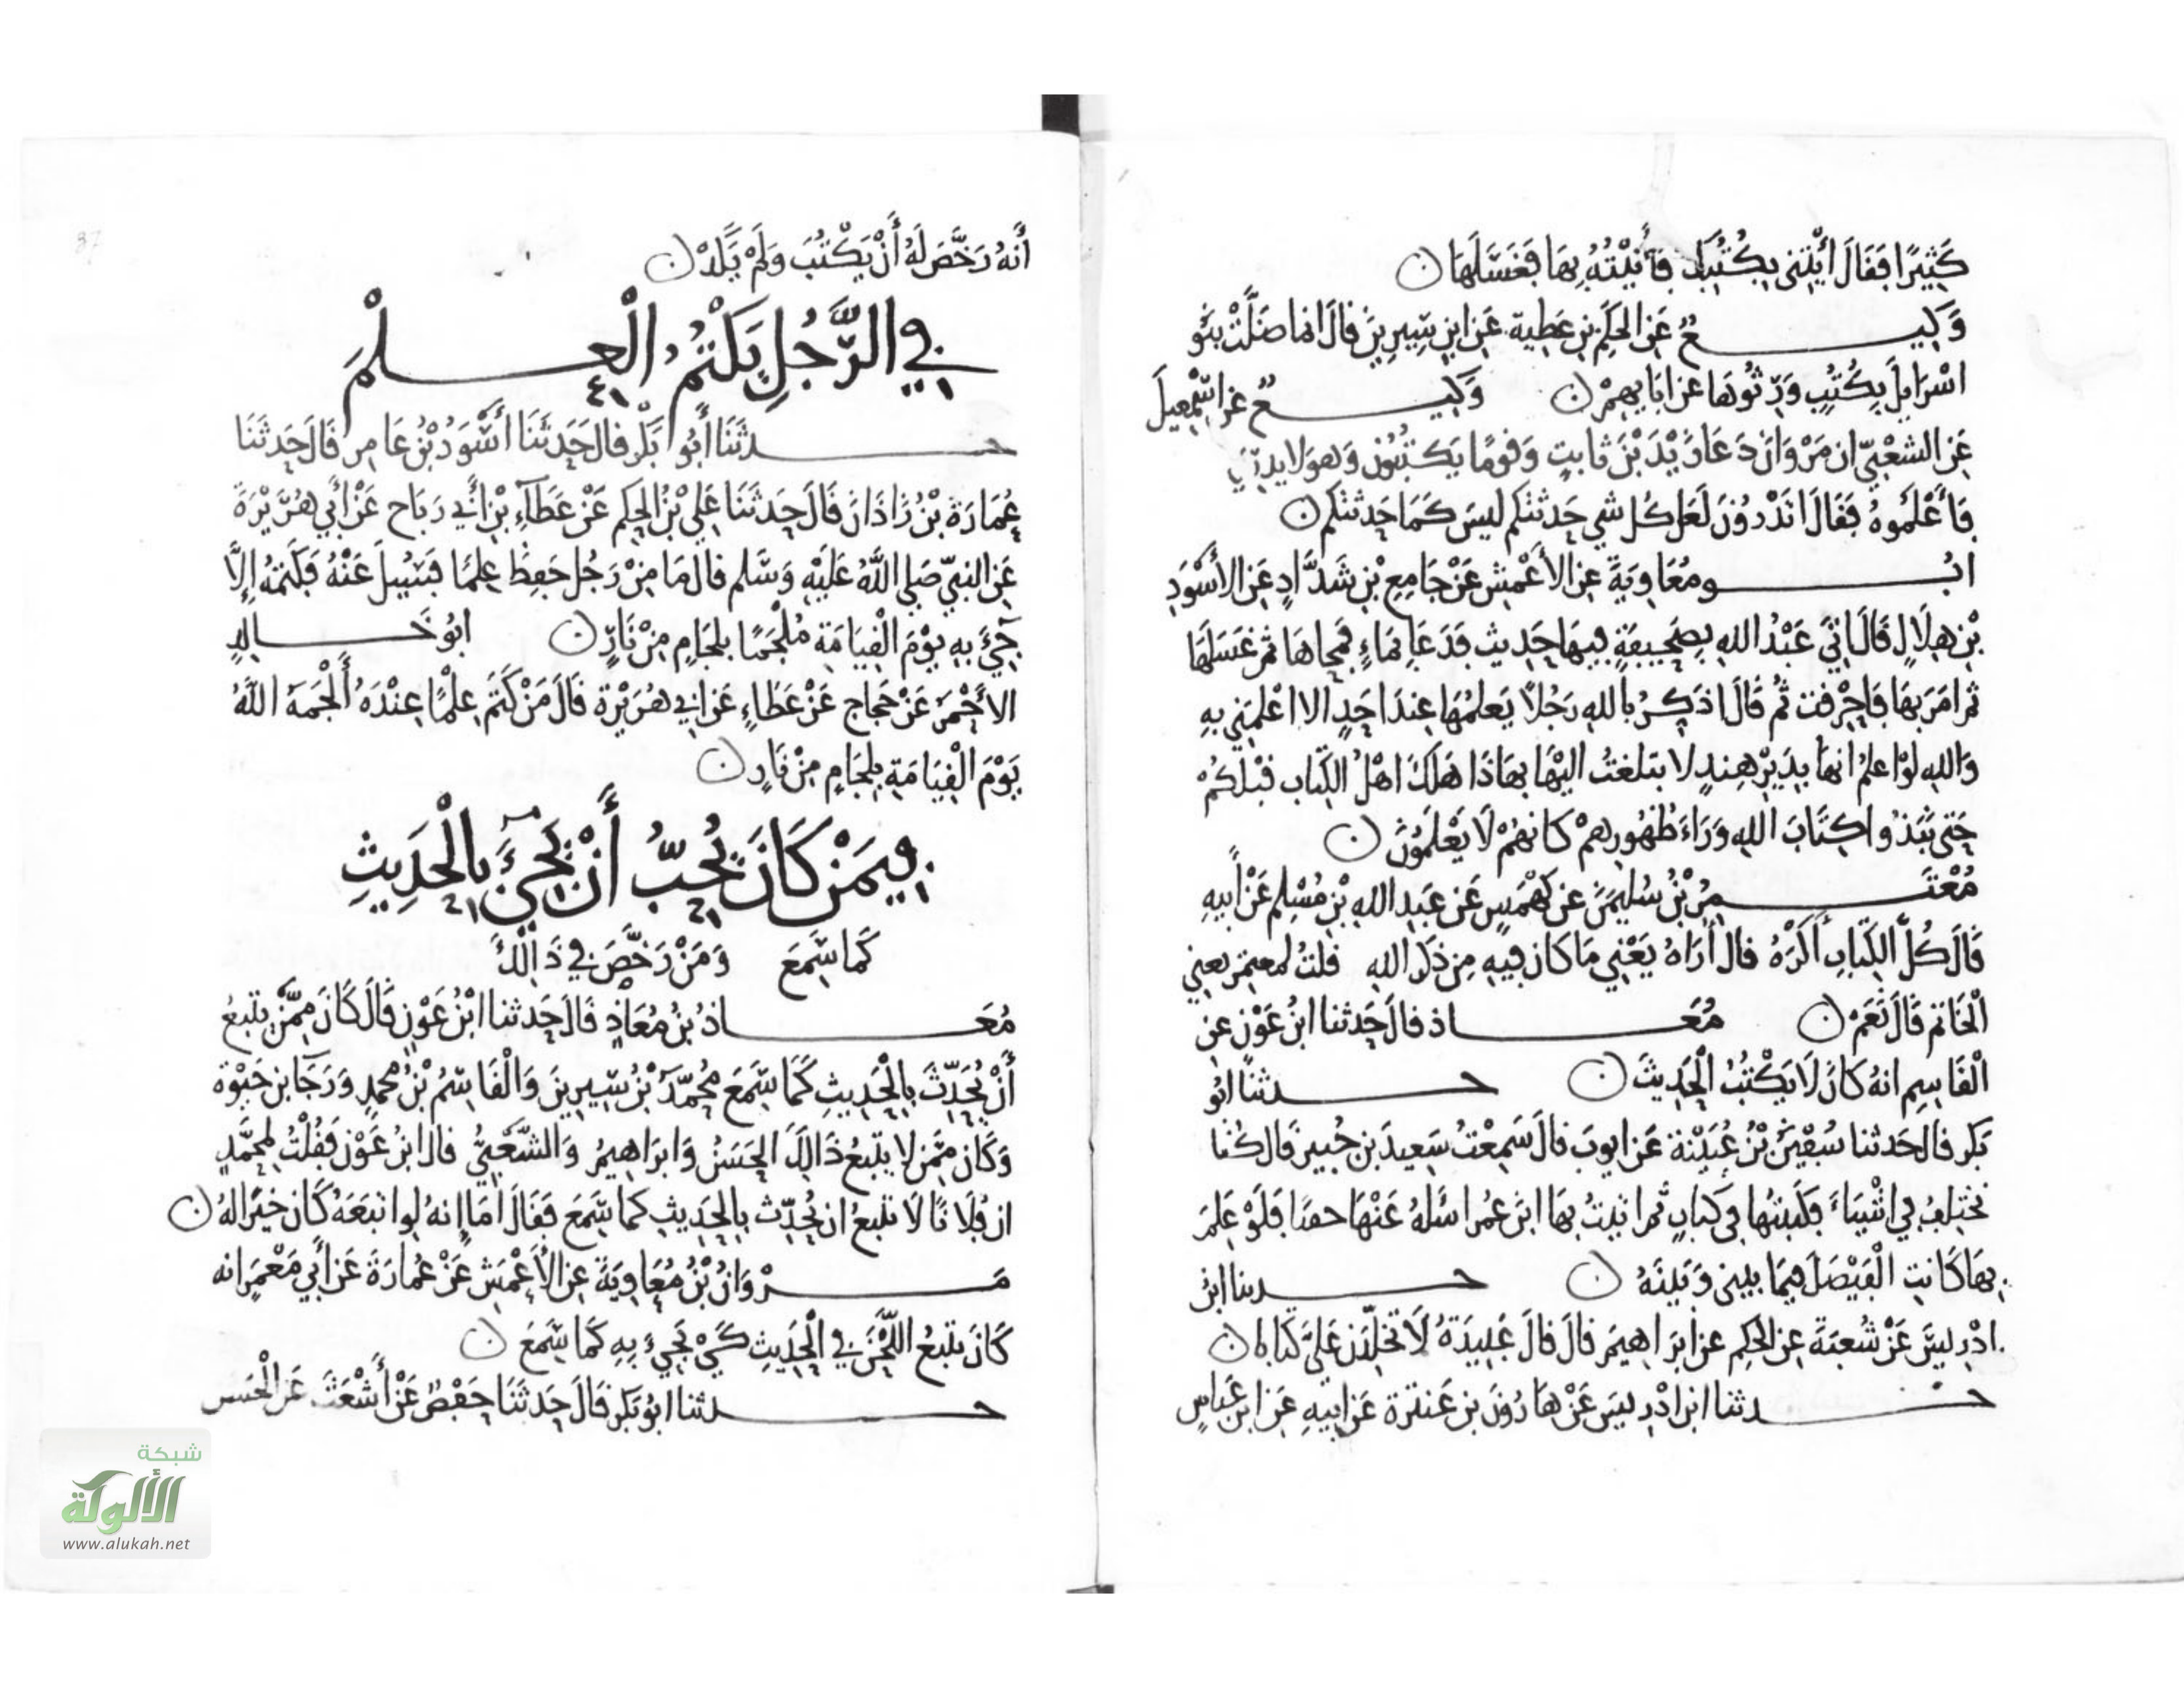 كَثِيرًا فَقَالَ ائْتِنِي بِكُتُبِكَ فَأَتَيْتُهُ بِهَا فَغَسَلَهَا ن
وَكِيعٌ عَنِ الحكَمِ بنِ عَطِية عَنِ ابنِ سِيرِينَ قالَ انما ضَلَّتْ بنُو
اسْرَايلَ بِكُتُبٍ وَرِثُوهَا عن ابَايهِمْ ن وَكِيعٌ عن اسْمعِيلَ
عَنِ الشعْبِيّ ان مَرْوَانَ دَعَا زَيْدَ بْنَ ثابتٍ وَقومًا يَكتُبُون وَهوَ لا يدرِي
فَأَعْلَمُوهُ فَقَالَ اتَدْرُونَ لَعَل كُل شي حَدثتكم ليسَ كَمَا حَدثتكم ن
ابُو مُعَاوِيَةَ عنِ الأعْمش عَنْ جَامِعِ بْنِ شَدَّادٍ عَنِ الأسْوَدِ
بْنِ هِلَالٍ قَالَ اتِيَ عَبْدُ اللهِ بِصَحِيفَةٍ فِيهَا حَدِيث فَدَعَا بمَاءٍ فَمحَاهَا ثمّ غَسَلَهَا
ثم امَرَ بهَا فَاحْرِقت ثُم قَالَ اذَكِرُ بالله رَجُلاً يَعلمُهَا عِندَ احَدٍ الا اعْلمَنِي بهِ
وَاللهِ لوْ اعلمُ انهَا بِدَيْرِ هِندٍ لا بتلغتُ اليْهَا بهَاذَا هَلَكَ اهْلُ الكِتَاب قَبْلكُمْ
حَتى نَبَذُوا كِتَابَ اللهِ وَرَاءَ ظُهُورِهمْ كانهُمْ لَا يَعْلَمُونَ ن
مُعْتَمِرُ بْنُ سُليمَنَ عن كَهْمَسٍ عَن عَبدِ اللهِ بْنِ مُسْلِم عَنْ أَبِيهِ
قَالَ كُلَّ الكِتَابِ أَكْرَهُ قال أُرَاهُ يَعْنِي مَا كان فِيهِ مِن ذكرِ اللهِ قلتُ لمعتمر يعني
الْخَاتم قَالَ نَعَمْ ن مُعَاذ قالَ حَدثنا ابنُ عَوْن عنِ
الْقَاسِمِ انهُ كَانَ لَا يَكْتُبُ الْحَدِيثَ ن حدثنا ابُو
بَكر قال حَدثنا سُفْيَنُ بْنُ عُيَيْنة عَن ايوبَ قالَ سَمِعْتُ سَعِيدَ بن جُبير قَال كُنا
نَختلِفُ فِي اشْيَاءَ فكَتبتهَا في كتابٍ ثم اتيتُ بهَا ابن عُمر اسْلهُ عَنْهَا خفيا فَلَوْ عَلمَ
بهَا كَانتِ الْفَيْصَلَ فيمَا بيني وَبَينَهُ ن حدثنا ابنُ
ادْرِيسَ عَنْ شُعبَةَ عنِ الحكم عن ابرَاهيمَ قالَ قالَ عَبِيدَةُ لَا تخلِّدَن عَليَّ كتابا ن
حدثنا ابن ادْرِيسَ عَنْ هَارُونَ بن عَنتَرَة عَن ابيهِ عَن ابن عَبَاسٍ
أَنهُ رَخَّصَ لَهُ أَنْ يَكْتُبَ وَلَمْ يَكَدْ ن
في الرَّجُلِ يَكْتُمُ الْعِلْمَ
حدثَنَا أَبُو بَكْر قال حَدثَنَا أَسْوَدُ بْنُ عَامِر قَالَ حَدثَنَا
عُمَارَة بْنُ زَاذَانَ قَالَ حَدثَنَا عَلِي بْنُ الحكم عَنْ عَطَاءِ بْنِ أَبِي رَبَاح عَنْ أَبِي هُرَيْرَةَ
عَنِ النبِيّ صَلي اللَّهُ عَلَيْهِ وَسَلم قالَ مَا مِنْ رَجُل حَفِظَ عِلمًا فَسُيلَ عَنْهُ فَكَتمَهُ إِلَّا
جِيءَ بهِ يوْمَ الْقِيَامَةِ مُلْجَمًا بلجَامٍ مِنْ نَارٍ ن ابُو خَالِدٍ
الاحْمَرُ عَنْ حَجاج عَنْ عَطاءٍ عَن ابي هُرَيْرة قَالَ مَنْ كَتَمَ عِلْمًا عِنْدَهُ أَلْجَمَهُ اللَّهُ
يَوْمَ الْقِيَامَةِ بِلِجَامٍ مِنْ نَارٍ ن
فِيمَنْ كَانَ يُحِبُّ أَنْ يَجِيءَ بِالْحَدِيثِ
كَمَا سَمِعَ وَمَنْ رَخَّصَ فِي ذَالِكَ
مُعَاذُ بنُ مُعَاذٍ قَالَ حَدثنا ابْنُ عَوْنٍ قَالَ كَانَ مِمَّنْ يتبعُ
أَنْ يُحَدِّثَ بِالْحَدِيثِ كَمَا سَمعَ مُحَمَّدُ بْنُ سِيرِينَ وَالْقَاسِمُ بْنُ مُحمدٍ وَرَجَا بن حَيْوة
وَكَان ممن لا يتبعُ ذَالِكَ الحسَنُ وَابرَاهيمُ وَالشّعْبيُّ قال ابنُ عَوْن فَقُلْتُ لمحَمَّدٍ
ان فُلَانًا لَا يتبعُ ان يُحدّث بِالحدِيثِ كما سَمعَ فَقَالَ امَا انهُ لو اتبَعَهُ كَان خيْرًا لهُ ن
مَرْوَانُ بْنُ مُعَاوِيَةَ عنِ الأعْمَشِ عَنْ عُمارَةَ عَن أَبِي مَعْمَرٍ انه
كَانَ يتبعُ اللَّحْنَ فِي الْحَدِيثِ كَيْ يَجِيءَ بِهِ كَمَا سَمعَ ن
حدثنا ابُو بَكر قَالَ حَدثَنَا حَفْصٌ عَنْ أَشْعَثَ عَنِ الْحَسَنِ
شبكة
الألوكة
www.alukah.net